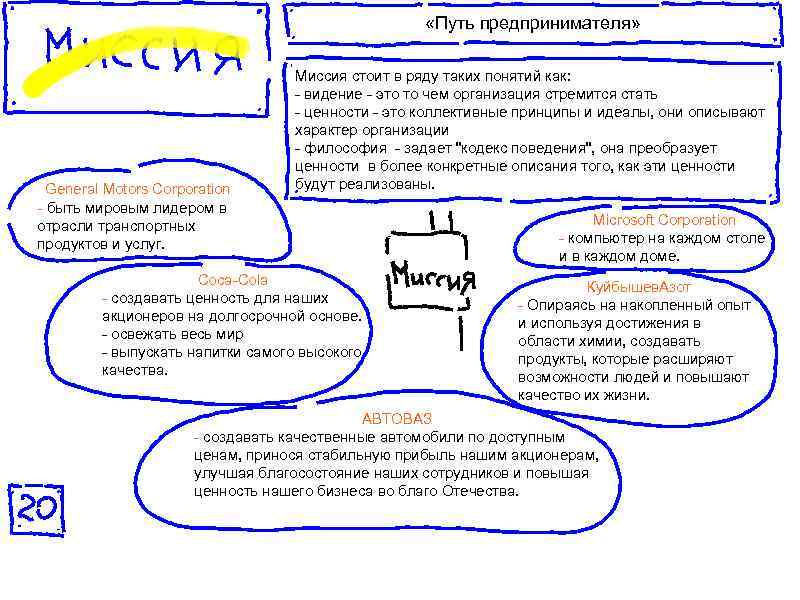 Миссия
«Путь предпринимателя»
Миссия стоит в ряду таких понятий как:
- видение - это то чем организация стремится стать
- ценности - это коллективные принципы и идеалы, они описывают
характер организации
- философия - задает "кодекс поведения", она преобразует
ценности в более конкретные описания того, как эти ценности
будут реализованы.
General Motors Corporation
- быть мировым лидером в
отрасли транспортных
продуктов и услуг.
Microsoft Corporation
- компьютер на каждом столе
и в каждом доме.
Миссия
Coca-Cola
- создавать ценность для наших
акционеров на долгосрочной основе.
- освежать весь мир
- выпускать напитки самого высокого
качества.
КуйбышевАзот
- Опираясь на накопленный опыт
и используя достижения в
области химии, создавать
продукты, которые расширяют
возможности людей и повышают
качество их жизни.
АВТОВАЗ
- создавать качественные автомобили по доступным
ценам, принося стабильную прибыль нашим акционерам,
улучшая благосостояние наших сотрудников и повышая
ценность нашего бизнеса во благо Отечества.
20